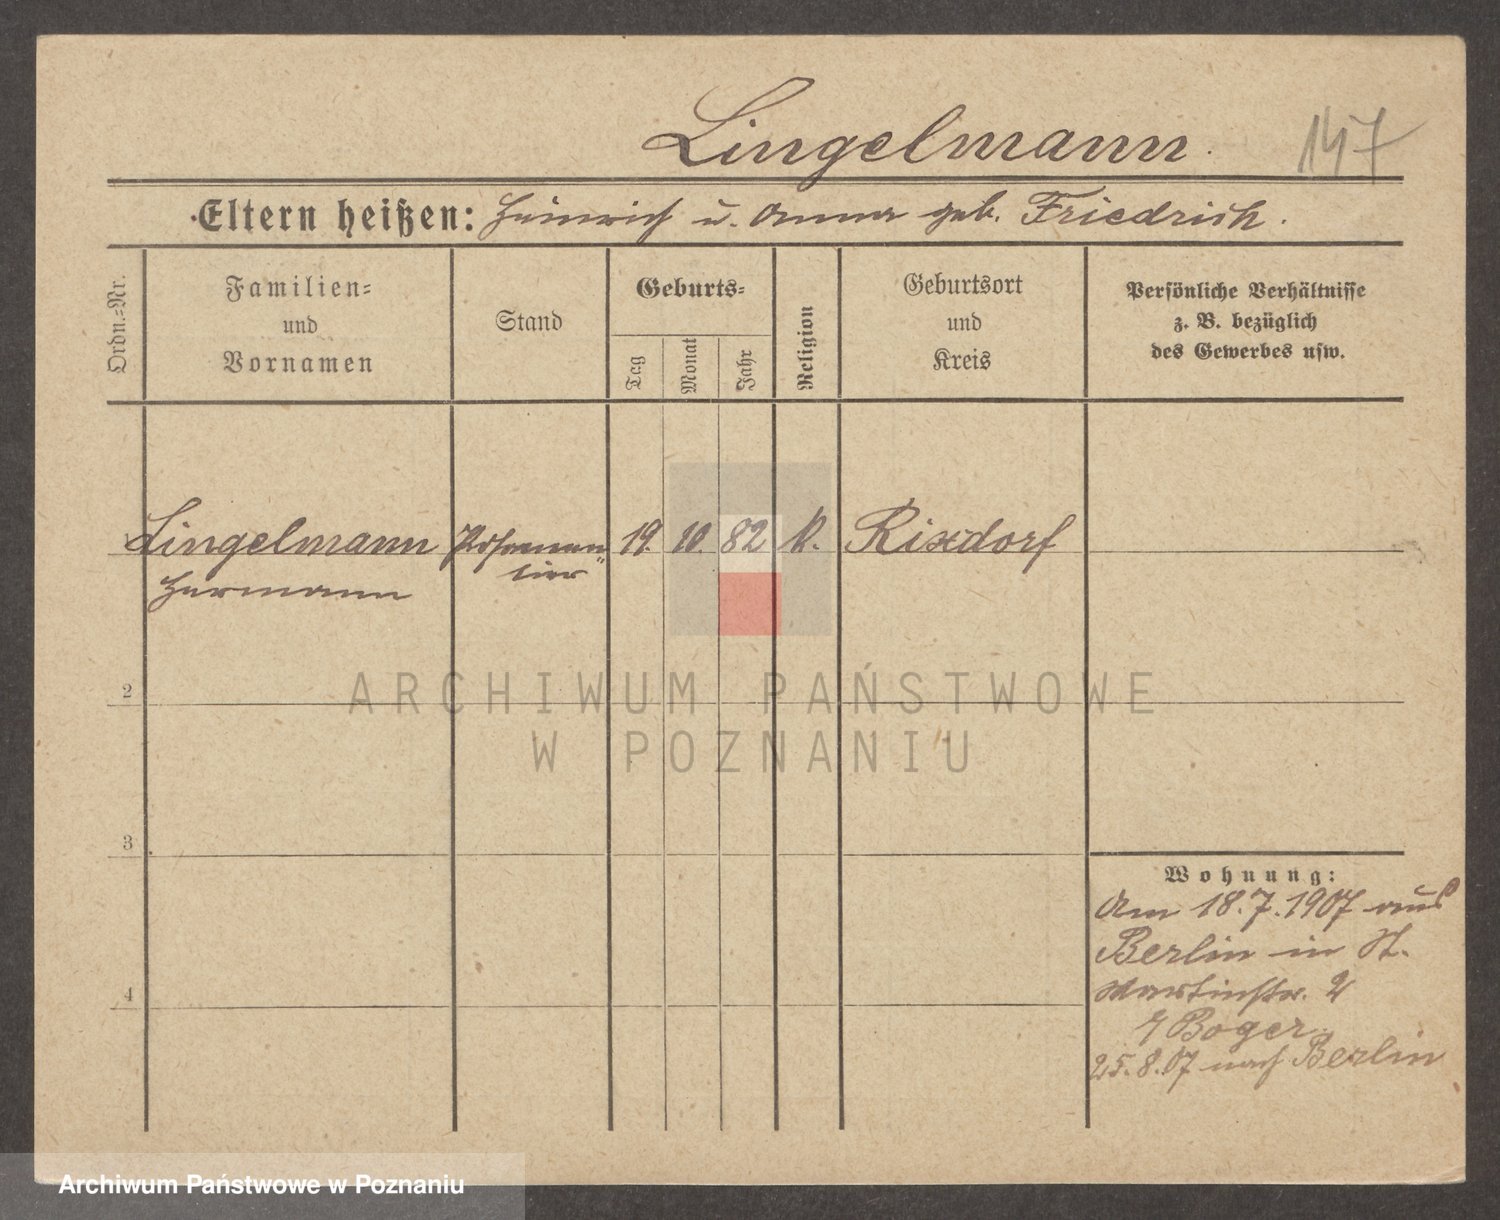 Lingelmann.
147
Eltern heißen: Heinrich u. Anna geb. Friedrich.
Ordn.-Nr.
Familien-
und
Vornamen
Stand
Geburts-
Tag
Monat
Jahr
Religion
Geburtsort
und
Kreis
Persönliche Verhältnisse
z. B. bezüglich
des Gewerbes usw.
Lingelmann Posamen 19. 10. 82 Rixdorf
Hermann tier
2
3
4
Wohnung:
Am 18.7.1907 aus
Berlin in St.
Martinstr. 2
Boger
25.8.07 nach Berlin
ARCHIWUM PAŃSTWOWE
W POZNANIU
Archiwum Państwowe w Poznaniu